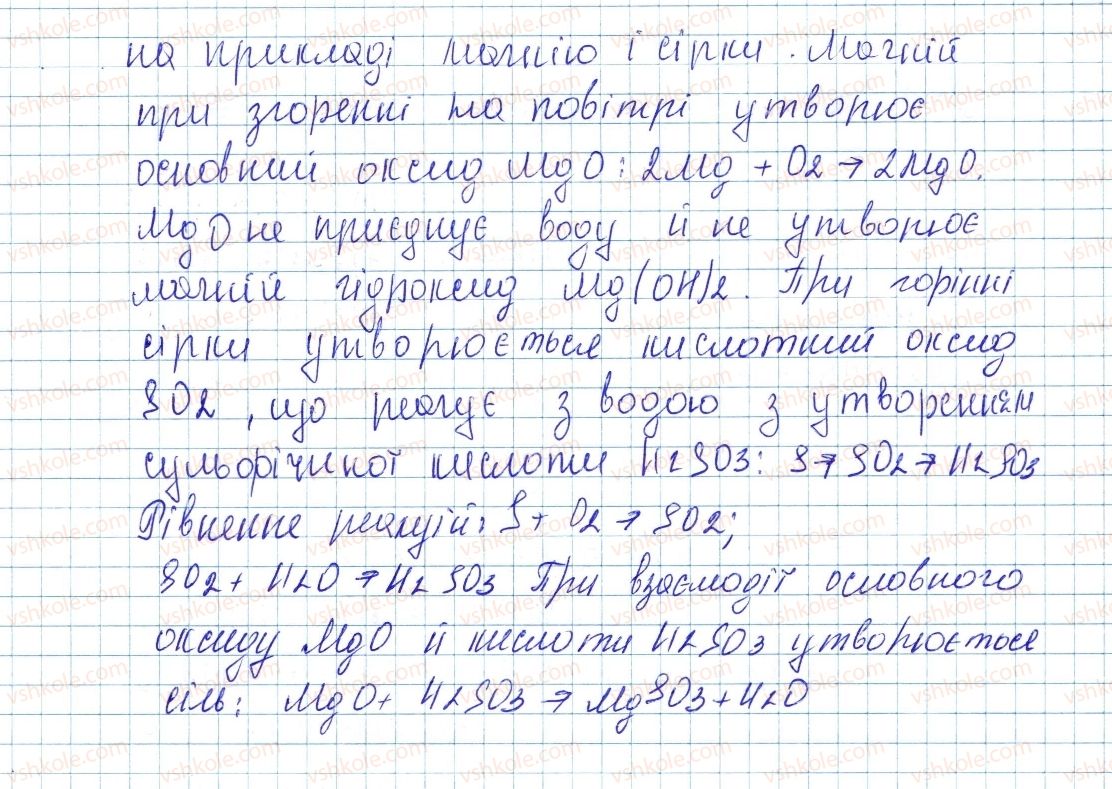 на прикладі магнію і сірки. Магній
при згоренні на повітрі утворює
основний оксид MgO: 2Mg + O2 → 2MgO.
MgO не приєднує воду й не утворює
магній гідроксид Mg(OH)2. При горінні
сірки утворюється кислотний оксид
SO2, що реагує з водою з утворенням
сульфітної кислоти H2SO3: S → SO2 → H2SO3
Рівняння реакцій: S + O2 → SO2;
SO2 + H2O → H2SO3 При взаємодії основного
оксиду MgO й кислоти H2SO3 утворюється
сіль: MgO + H2SO3 → MgSO3 + H2O